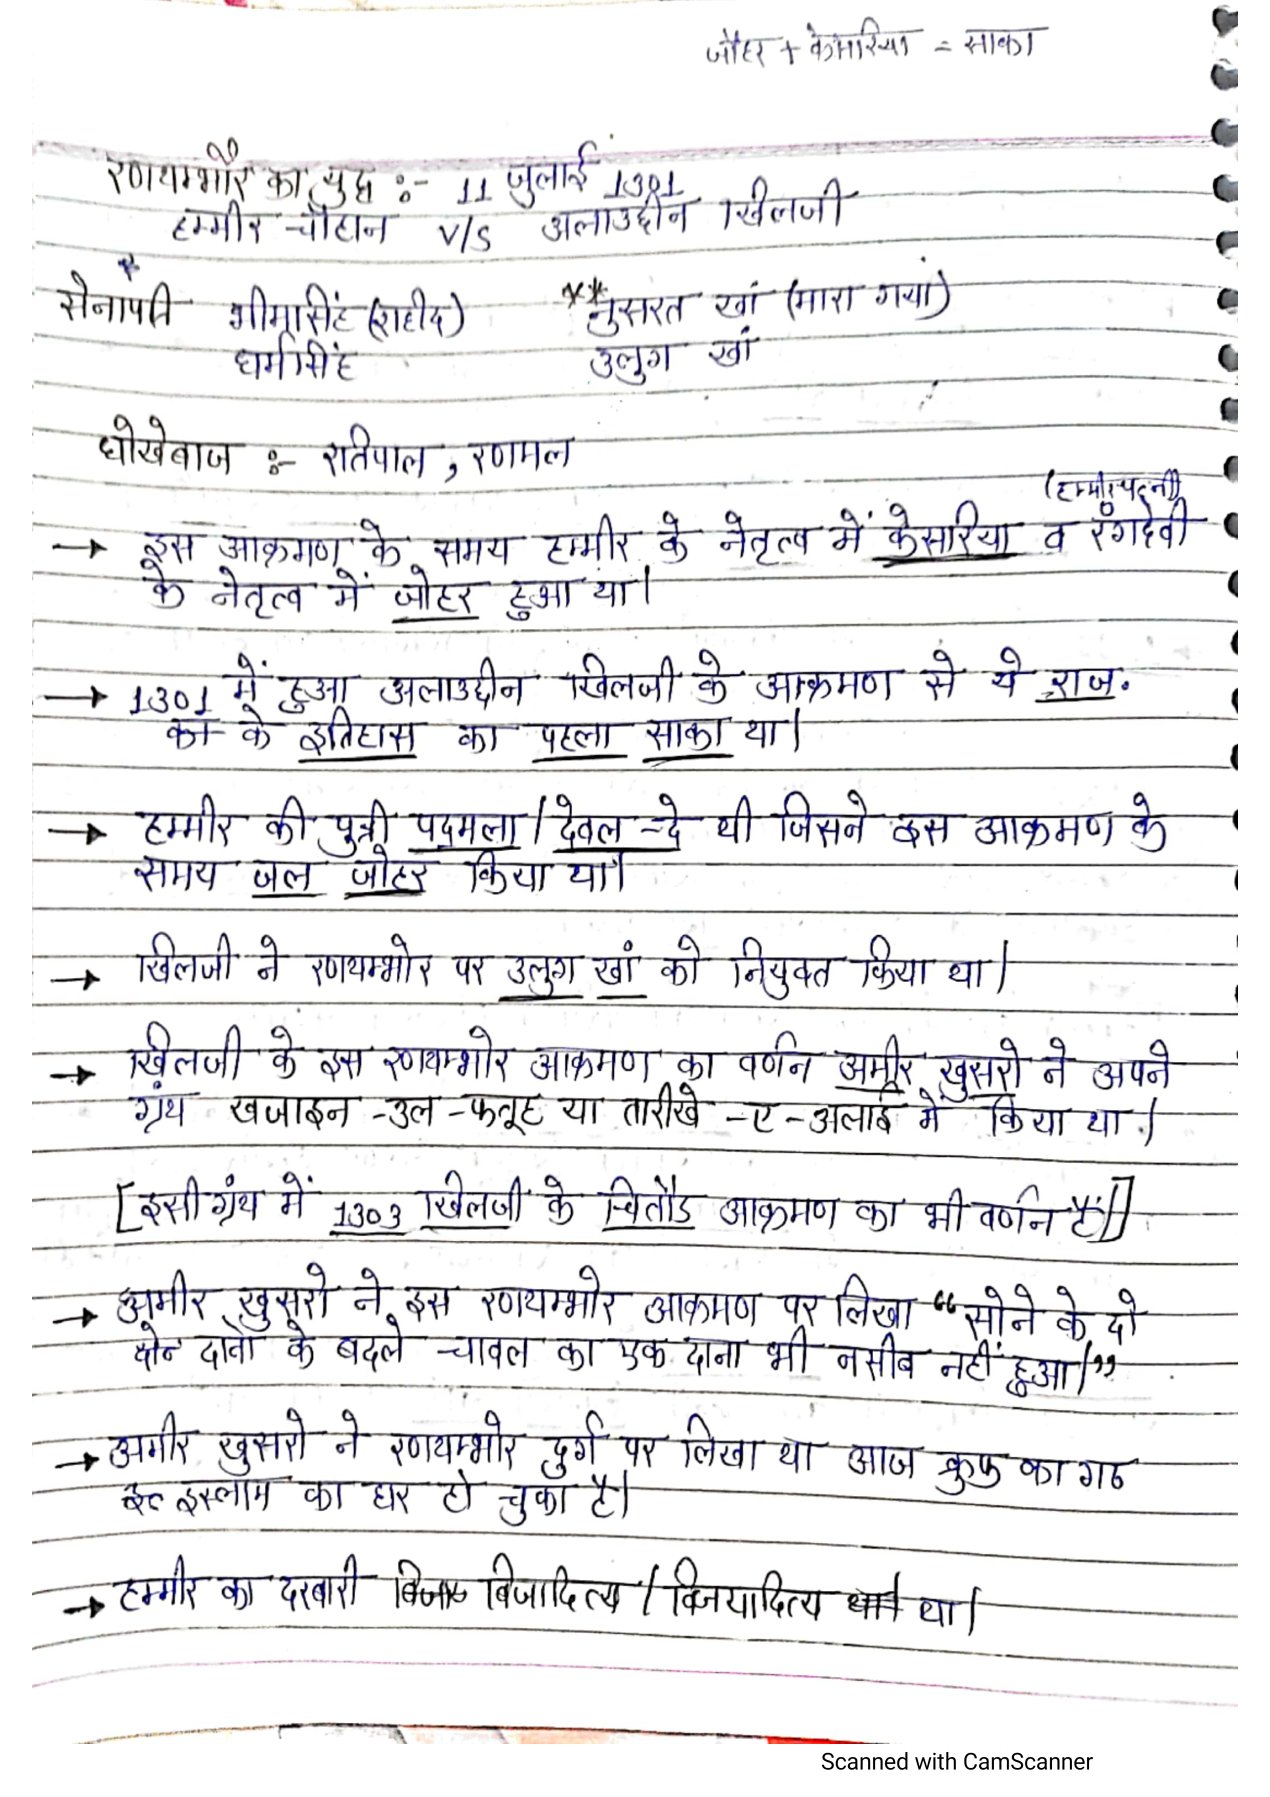 जौहर + केसरिया = साका
रणथम्भौर का युद्ध :- 11 जुलाई 1301
हम्मीर चौहान v/s अलाउद्दीन खिलजी
सेनापति भीमसिंह (शहीद) **नुसरत खां (मारा गया)
धर्मसिंह उलुग खां
धोखेबाज :- रतिपाल, रणमल
(हम्मीर पत्नी)
→ इस आक्रमण के समय हम्मीर के नेतृत्व में केसरिया व रंगदेवी
के नेतृत्व में जोहर हुआ था।
→ 1301 में हुआ अलाउद्दीन खिलजी के आक्रमण से ये राज.
का के इतिहास का पहला साका था।
→ हम्मीर की पुत्री पदमला / देवल-दे थी जिसने इस आक्रमण के
समय जल जोहर किया था।
→ खिलजी ने रणथम्भोर पर उलुग खां को नियुक्त किया था।
→ खिलजी के इस रणथम्भोर आक्रमण का वर्णन अमीर खुसरो ने अपने
ग्रंथ खजाइन-उल-फतूह या तारीखे-ए-अलाई में किया था।
[इसी ग्रंथ में 1303 खिलजी के चितौड आक्रमण का भी वर्णन है।]
→ अमीर खुसरो ने इस रणथम्भोर आक्रमण पर लिखा “सोने के दो
दानों के बदले चावल का एक दाना भी नसीब नहीं हुआ।”
→ अमीर खुसरो ने रणथम्भोर दुर्ग पर लिखा था आज कुफ्र का गढ
इस्लाम का घर हो चुका है।
→ हम्मीर का दरबारी बिजादित्य / विजयादित्य था।
Scanned with CamScanner